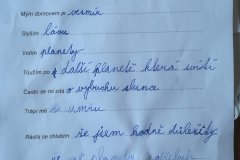 Mým domovem je vesmír
Slyším lávu
Vidím planety
Toužím po další planetě která svítí
Často se mi zdá o výbuchu slunce
Trápí mě že umřu
Rád/a se chlubím že jsem hodně důležitý